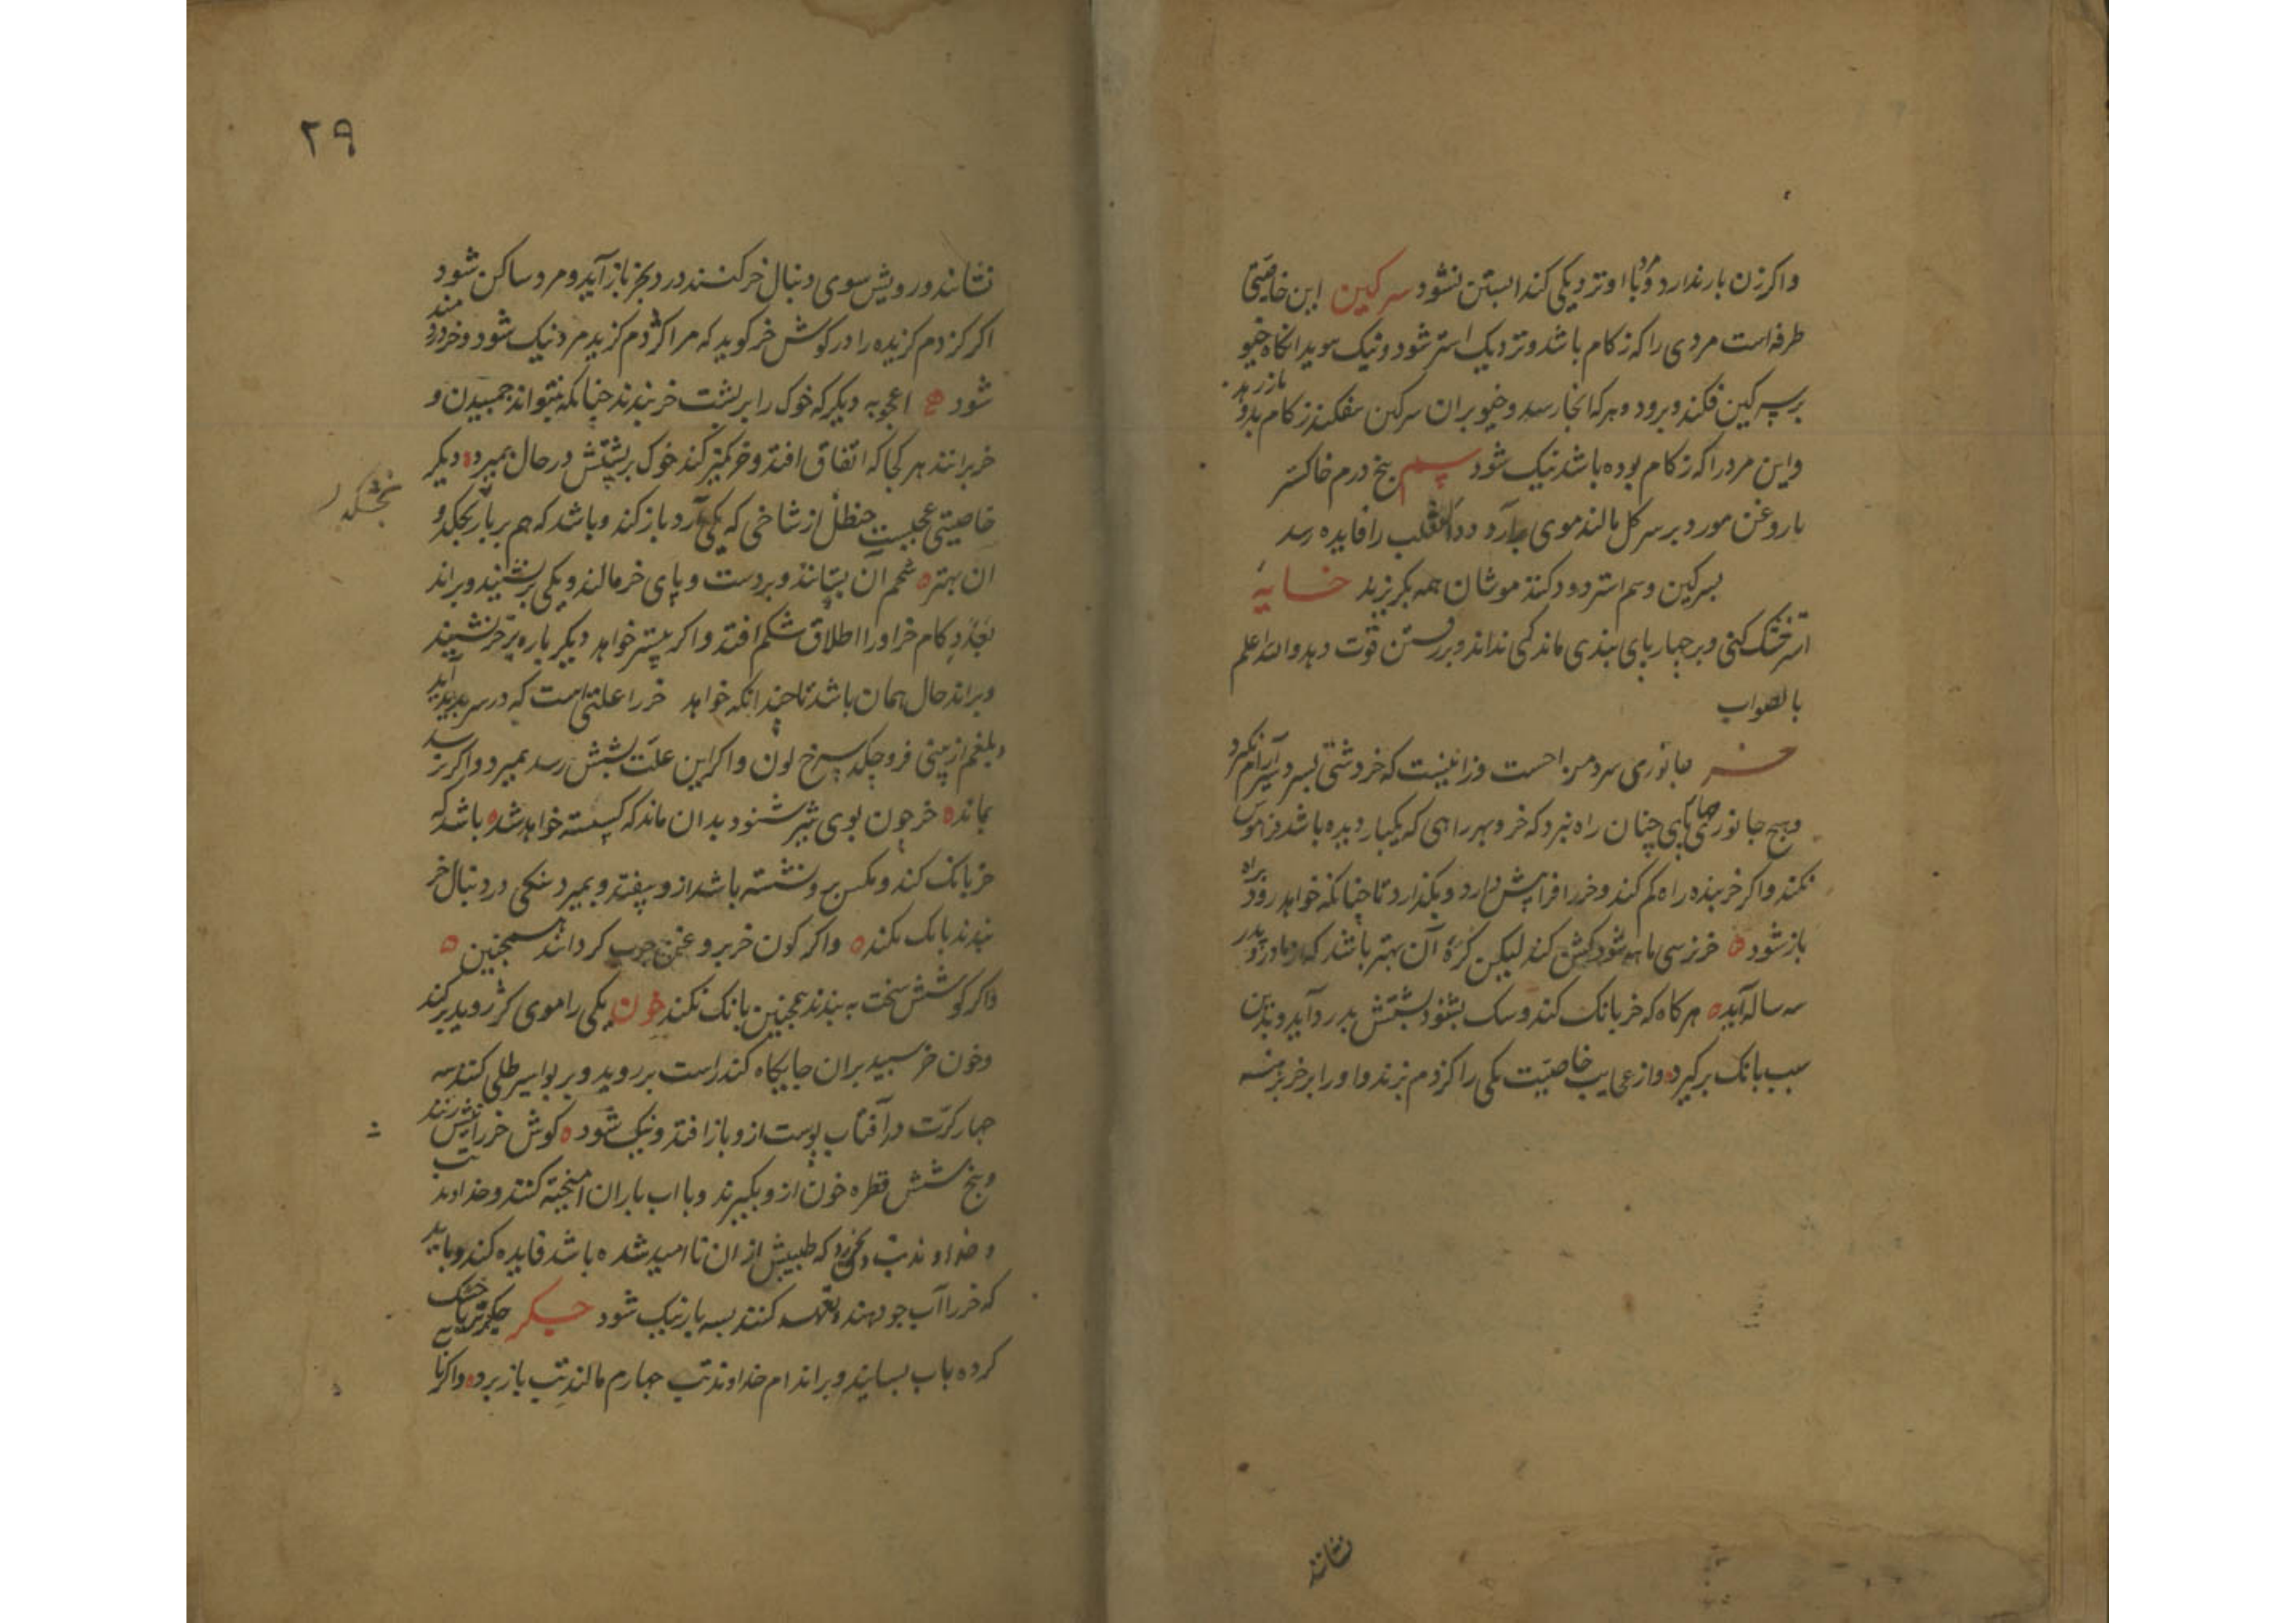 واکر زن بار ندارد و مرد با او نزدیکی کند ابستن نشود سرکین این خاصیتی
طرفه است مردی را که زکام باشد و نزدیک استر شود و نیک بوید انکاه خیو
بر سرکین فکند و برود و هر که انجا رسد و خیو بران سرکین بفکند زکام بدو باز دهد
واین مرد را که زکام بوده باشد نیک شود سم پنج درم خاکستر
با روغن مورد بر سر کل مالند موی برآرد و داء الثعلب را فایده رسد
بسرکین و سم استر دود کنند موشان همه بکریزند خایهٔ
استر خشک کنی و بر چهارپای بندی ماندکی نداند و بر رفتن قوت دهد والله اعلم
بالصواب
خر جانوری سرد مزاجست و زانیست که خر دشتی بسردسیر آرام نکیرد
وهیچ جانور چهارپای چنان راه نبرد که خر و بهر راهی که یکبار دیده باشد فراموش
نکند واکر خربنده راه کم کند و خر را فرا پیش دارد و بکذارد تا چنانکه خواهد رود براه
باز شود خر نر سی ماهه شود کشن کند لیکن کرهٔ آن بهتر باشد که از مادر و پدر
سه ساله آید هرکاه که خر بانک کند و سک بشنود پشتش بدرد آید و بدین
سبب بانک برکیرد و از عجایب خاصیت یکی را کزدم بزند و او را بر خر برهنه
نشانند
۲۹
نشانند و رویش سوی دنبال خر کنند درد بخر باز آید و مرد ساکن شود
اکر کزدم کزیده را در کوش خر کوید که مرا کژدم کزید مرد نیک شود و خر دردمند
شود اعجوبه دیکر که خوک را بر پشت خر بندند چنانکه نتواند جمبیدن و
خر برانند هر کجا که اتفاق افتد و خر کمیز کند خوک بر پشتش در حال بمیرد دیکر
خاصیتی عجیبست حنظل از شاخی که یکی آرد باز کند و باشد که هم بر بار بخکد و
ان بهتر شحم آن بستانند و بر دست و پای خر مالند و یکی برنشیند و براند
بعدد کام خر او را اطلاق شکم افتد واکر بیشتر خواهد دیکر باره بر خر نشیند
وبراند حال همان باشد تا چندانکه خواهد خر را علتی است که در سر پدید آید
و بلغم از بینی فرو چکد سرخ لون واکر این علت بشش رسد بمیرد واکر نرسد
بماند خر چون بوی شیر شنود بدان ماند که کسسته خواهد شد باشد که
خر بانک کند و مکس بر و نشسته باشد از و بیفتد و بمیرد سنکی در دنبال خر
بندند بانک نکند واکر کون خر بروغن چرب کردانند همچنین
واکر کوشش سخت به بندند همچنین بانک نکند خون یکی را موی کژ روید برکند
وخون خر سپید بران جایکاه کند راست بر روید و بر بواسیر طلی کنند سه
چهار کرت در آفتاب پوست از و باز افتد و نیک شود کوش خر را نیش زنند
و پنج شش قطره خون از و بکیرند و با اب باران امیخته کنند و خداوند تب
و خداوند تب بخورد که طبیبش از ان ناامید شده باشد فایده کند و باید
که خر را آب جو دهند و تعهد کنند بسه بار نیک شود جکر جکر خر تباه خشک
کرده باب بسایند و بر اندام خداوند تب چهارم مالند تب باز برد واکر با